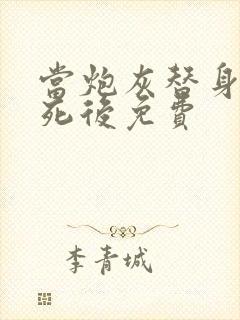 當炮灰替身
死後免費
李青城